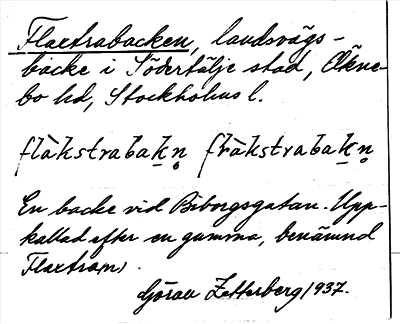 Flaxtrabacken, landsvägs-
backe i Södertälje stad, Økne-
bo hd, Stockholms l.
flàkstrabak̲n̥ fràkstrabak̲n̥
En backe vid Biborgsgatan. Upp-
kallad efter en gumma, benämnd
Flaxtran).
Göran Zetterberg 1937.